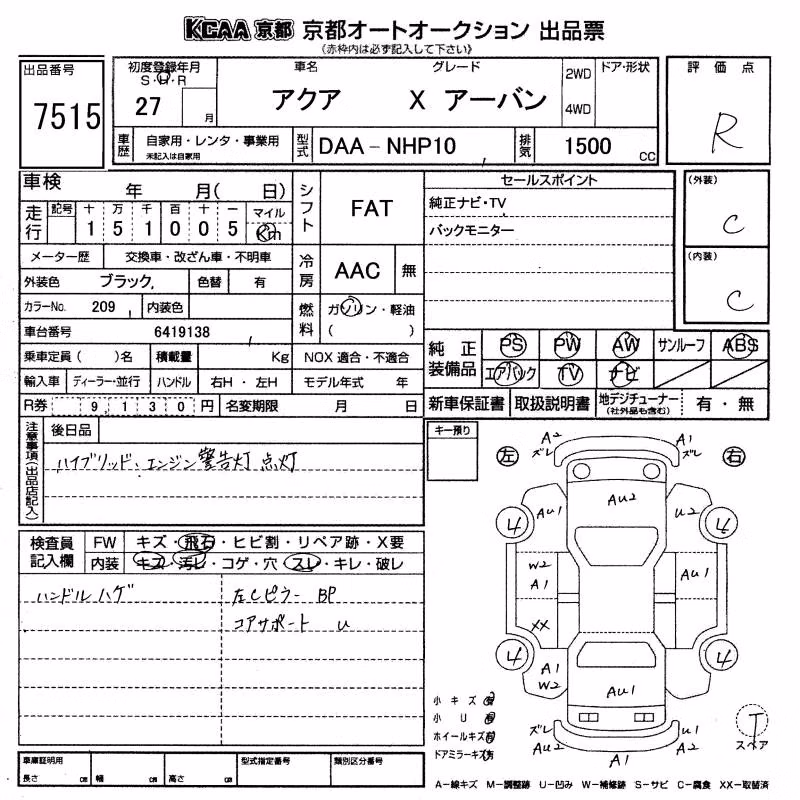 KCAA 京都 京都オートオークション 出品票
(赤枠内は必ず記入して下さい)
出品番号
7515
初度登録年月
S・H・R
27 月
車名 グレード
アクア X アーバン
2WD
4WD
ドア・形状
車歴
自家用・レンタ・事業用
未記入は自家用
型式
DAA-NHP10
排気
1500 CC
評価点
R
車検 年 月( 日)
走行
記号 十 万 千 百 十 一 マイル
1 5 1 0 0 5 Km
メーター歴 交換車・改ざん車・不明車
外装色 ブラック 色替 有
カラーNo. 209 内装色
車台番号 6419138
乗車定員( )名 積載量 Kg
輸入車 ディーラー・並行 ハンドル 右H・左H
R券 9,130円 名変期限 月 日
シフト FAT
冷房 AAC 無
燃料 ガソリン・軽油
( )
NOX 適合・不適合
モデル年式 年
セールスポイント
純正ナビ・TV
バックモニター
(外装)
C
(内装)
C
純正装備品
PS PW AW サンルーフ ABS
エアバック TV ナビ
新車保証書 取扱説明書 地デジチューナー(社外品も含む) 有・無
注意事項(出品店記入)
後日品
ハイブリッド、エンジン警告灯 点灯
キー預り
検査員記入欄
FW キズ・飛石・ヒビ割・リペア跡・X要
内装 キズ・汚レ・コゲ・穴・スレ・キレ・破レ
ハンドルハゲ
左Cピラー BP
コアサポート U
左 右
A2 ズレ
A1 ズレ
AU2
AU1 U2
4 4
W2
A1
AU1
XX
4 4
A1
W2
AU1
ズレ
AU2
A1
U1 ズレ
A2
T
スペア
小キズ有
小U有
ホイールキズ有
ドアミラーキズ有
車庫証明用
長さ cm 幅 cm 高さ cm
型式指定番号
類別区分番号
A-線キズ M-調整跡 U-凹み W-補修跡 S-サビ C-腐食 XX-取替済